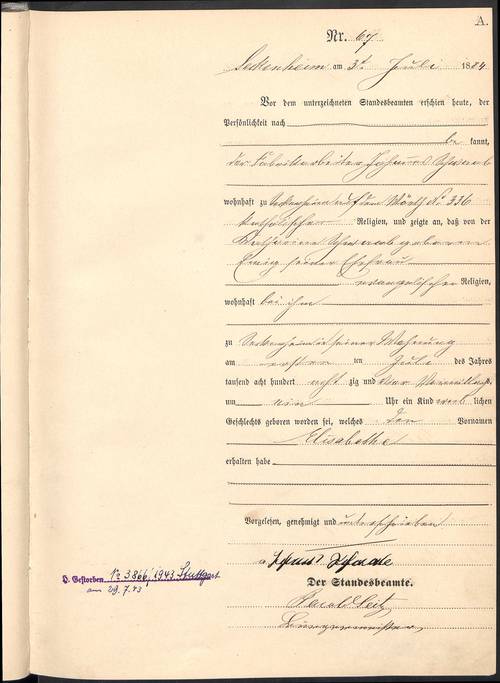 A.
Nr. 67
Seckenheim am 3t Juli 1884
Vor dem unterzeichneten Standesbeamten erschien heute, der
Persönlichkeit nach
be kannt,
der Fabrikarbeiter Johann Schwab
wohnhaft zu Seckenheim auf dem Wörth No 336
katholischer Religion, und zeigte an, daß von der
Katharina Schwab geborenen
Ewig seiner Ehefrau
evangelischer Religion,
wohnhaft bei ihm
zu Seckenheim in seiner Wohnung
am ersten ten Juli des Jahres
tausend acht hundert acht zig und vier Vormittags
um Uhr ein Kind weib lichen
Geschlechts geboren worden sei, welches den Vornamen
Elisabetha
erhalten habe
Vorgelesen, genehmigt und unterschrieben
Der Standesbeamte.
Seitz
Bürgermeister
Gestorben No 3866/1943 Stuttgart
am 29.7.43